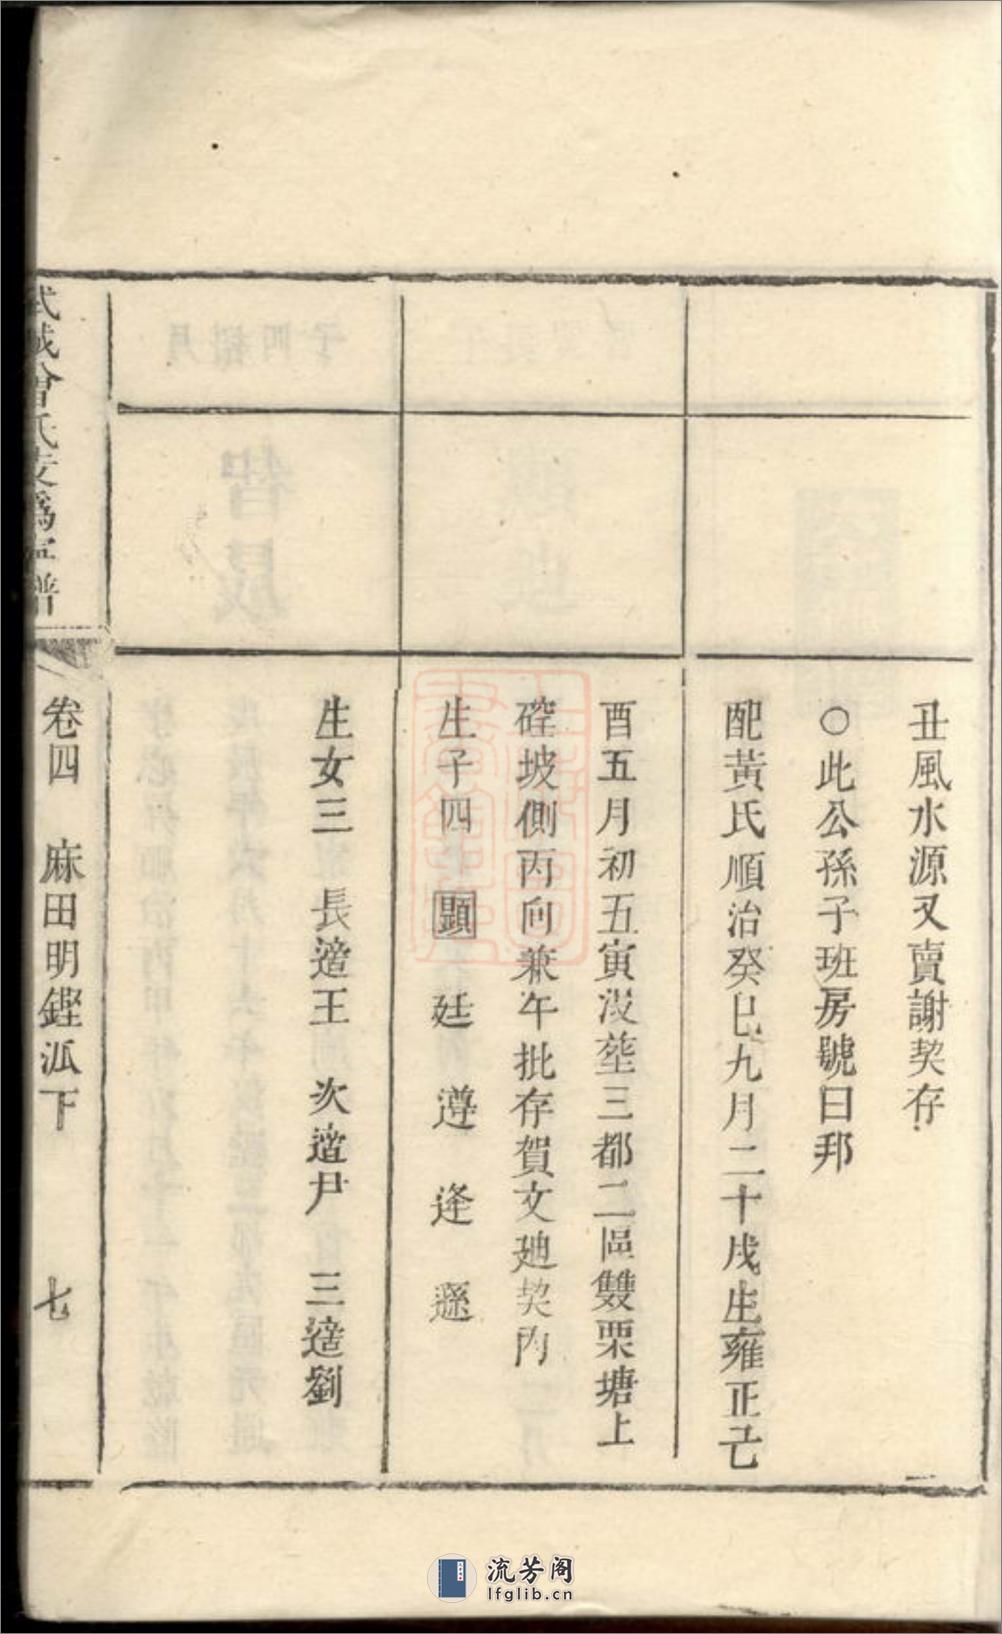 丑風水源又賣謝契存
○此公孫子班房號曰邦
配黃氏順治癸巳九月二十戌生雍正乙
酉五月初五寅沒塟三都二區雙栗塘上
硿坡側丙向兼午批存賀文廸契內
生子四 顕 廷 遵 逢 遜
生女三 長適王 次適尹 三適劉
武城曾氏支爲寧譜
卷四 麻田明鏗派下 七
流芳阁
lfglib.cn